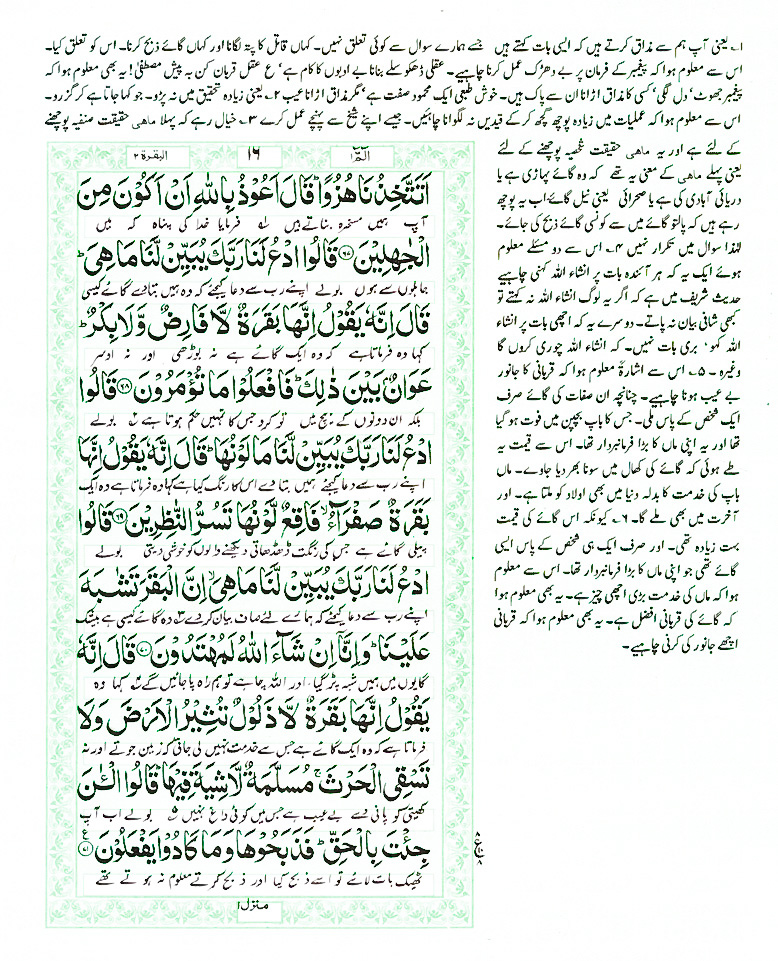 ۱۔ یعنی آپ ہم سے مذاق کرتے ہیں کہ ایسی بات کہتے ہیں جسے ہمارے سوال سے کوئی تعلق نہیں۔ کہاں قاتل کا پتہ لگانا اور کہاں گائے ذبح کرنا۔ اس کو تعلق کیا۔
اس سے معلوم ہوا کہ پیغمبر کے فرمان پر بے دھڑک عمل کرنا چاہیے۔ عقلی ڈھکوسلے بنانا بے ادبوں کا کام ہے‘ ع عقل قربان کن بہ پیش مصطفیٰ! یہ بھی معلوم ہوا کہ
پیغمبر جھوٹ‘ دل لگی‘ کسی کا مذاق اڑانا ان سے پاک ہیں۔ خوش طبعی ایک محمود صفت ہے‘ مگر مذاق اڑانا عیب ۲۔ یعنی زیادہ تحقیق میں نہ پڑو۔ جو کہا جاتا ہے کر گزرو۔
اس سے معلوم ہوا کہ عملیات میں زیادہ پوچھ گچھ کر کے قیدیں نہ لگوانا چاہئیں۔ جیسے اپنے شیخ سے پہنچے عمل کرے ۳۔ خیال رہے کہ پہلا ماھی حقیقت صنفیہ پوچھنے
کے لئے ہے اور یہ ماھی حقیقت شخصیہ پوچھنے کے لئے
یعنی پہلے ماھی کے معنی یہ تھے کہ وہ گائے پہاڑی ہے یا
دریائی آبادی کی ہے یا صحرائی یعنی نیل گائے‘ اب یہ پوچھ
رہے ہیں کہ پالتو گائے میں سے کونسی گائے ذبح کی جائے۔
لہٰذا سوال میں تکرار نہیں ۴۔ اس سے دو مسئلے معلوم
ہوئے ایک یہ کہ ہر آئندہ بات پر انشاء اللہ کہنی چاہیے
حدیث شریف میں ہے کہ اگر یہ لوگ انشاء اللہ نہ کہتے تو
کبھی شافی بیان نہ پاتے۔ دوسرے یہ کہ اچھی بات پر انشاء
اللہ کہو‘ بری بات نہیں۔ کہ انشاء اللہ چوری کروں گا
وغیرہ۔ ۵۔ اس سے اشارۃً معلوم ہوا کہ قربانی کا جانور
بے عیب ہونا چاہیے۔ چنانچہ ان صفات کی گائے صرف
ایک شخص کے پاس ملی۔ جس کا باپ بچپن میں فوت ہو گیا
تھا اور یہ اپنی ماں کا بڑا فرمانبردار تھا۔ اس سے قیمت یہ
طے ہوئی کہ گائے کی کھال میں سونا بھر دیا جاوے۔ ماں
باپ کی خدمت کا بدلہ دنیا میں بھی اولاد کو ملتا ہے۔ اور
آخرت میں بھی ملے گا۔ ۶۔ کیونکہ اس گائے کی قیمت
بہت زیادہ تھی۔ اور صرف ایک ہی شخص کے پاس ایسی
گائے تھی جو اپنی ماں کا بڑا فرمانبردار تھا۔ اس سے معلوم
ہوا کہ ماں کی خدمت بڑی اچھی چیز ہے۔ یہ بھی معلوم ہوا
کہ گائے کی قربانی افضل ہے۔ یہ بھی معلوم ہوا کہ قربانی
اچھے جانور کی کرنی چاہیے۔
الٓمّٓ۱ ۱۶ البقرۃ ۲
اَتَتَّخِذُنَا هُزُوًا ؕ قَالَ اَعُوْذُ بِاللّٰهِ اَنْ اَكُوْنَ مِنَ
آپ ہمیں مسخرہ بناتے ہیں فرمایا خدا کی پناہ کہ میں
الْجٰهِلِیْنَ ﴿۶۷﴾ قَالُوا ادْعُ لَنَا رَبَّكَ یُبَیِّنْ لَّنَا مَا هِیَ ؕ
جاہلوں سے ہوں بولے اپنے رب سے دعا کیجئے کہ وہ ہمیں بتا دے گائے کیسی
قَالَ اِنَّهٗ یَقُوْلُ اِنَّهَا بَقَرَةٌ لَّا فَارِضٌ وَّلَا بِكْرٌ ؕ
کہا وہ فرماتا ہے کہ وہ ایک گائے ہے نہ بوڑھی اور نہ اوسر
عَوَانٌۢ بَیْنَ ذٰلِكَ ؕ فَافْعَلُوْا مَا تُؤْمَرُوْنَ ﴿۶۸﴾ قَالُوا
بلکہ ان دونوں کے بیچ میں تو کرو جس کا تمہیں حکم ہوتا ہے بولے
ادْعُ لَنَا رَبَّكَ یُبَیِّنْ لَّنَا مَا لَوْنُهَا ؕ قَالَ اِنَّهٗ یَقُوْلُ اِنَّهَا
اپنے رب سے دعا کیجئے ہمیں بتا دے اس کا رنگ کیا ہے کہا وہ فرماتا ہے وہ ایک
بَقَرَةٌ صَفْرَآءُ ۙ فَاقِعٌ لَّوْنُهَا تَسُرُّ النّٰظِرِیْنَ ﴿۶۹﴾ قَالُوا
پیلی گائے ہے جس کی رنگت ڈھڈھاتی دیکھنے والوں کو خوشی دیتی بولے
ادْعُ لَنَا رَبَّكَ یُبَیِّنْ لَّنَا مَا هِیَ ۙ اِنَّ الْبَقَرَ تَشٰبَهَ
اپنے رب سے دعا کیجئے کہ ہمارے لئے صاف بیان کر دے وہ گائے کیسی ہے بیشک
عَلَیْنَا ؕ وَاِنَّاۤ اِنْ شَآءَ اللّٰهُ لَمُهْتَدُوْنَ ﴿۷۰﴾ قَالَ اِنَّهٗ
گایوں میں ہمیں شبہ پڑ گیا اور اللہ چاہے تو ہم راہ پا جائیں گے کہا وہ
یَقُوْلُ اِنَّهَا بَقَرَةٌ لَّا ذَلُوْلٌ تُثِیْرُ الْاَرْضَ وَلَا
فرماتا ہے کہ وہ ایک گائے ہے جس سے خدمت نہیں لی جاتی کہ زمین جوتے اور نہ
تَسْقِی الْحَرْثَ ۚ مُسَلَّمَةٌ لَّا شِیَةَ فِیْهَا ؕ قَالُوا الْـٰٔنَ
کھیتی کو پانی دے بے عیب ہے جس میں کوئی داغ نہیں بولے اب آپ
جِئْتَ بِالْحَقِّ ؕ فَذَبَحُوْهَا وَمَا كَادُوْا یَفْعَلُوْنَ ﴿۷۱﴾
ٹھیک بات لائے تو اسے ذبح کیا اور ذبح کرتے معلوم نہ ہوتے تھے
منزل ۱